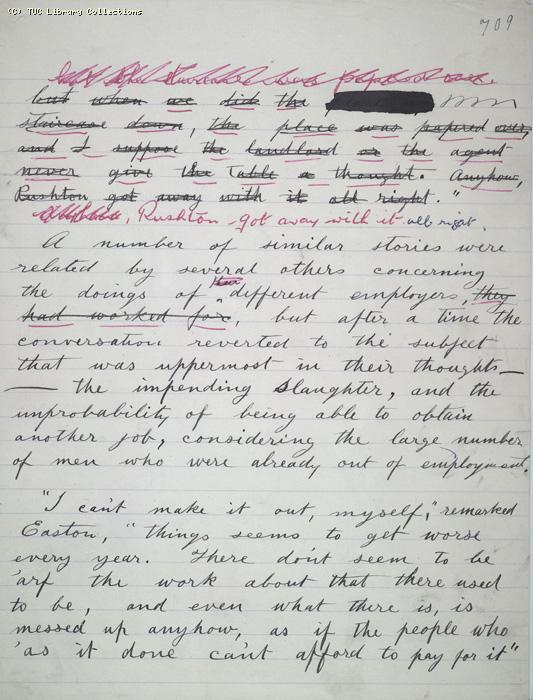 (C) TUC Library Collections
709
but when we did the
staircase down, the place was papered over,
and I suppose the landlord or the agent
never give the table a thought. Anyhow,
Rushton got away with it all right."
, Rushton got away with it all right.
A number of similar stories were
related by several others concerning
the doings of different employers, they
had worked for, but after a time the
conversation reverted to the subject
that was uppermost in their thoughts—
— the impending slaughter, and the
improbability of being able to obtain
another job, considering the large number
of men who were already out of employment.
"I can't make it out, myself," remarked
Easton, "things seems to get worse
every year. There don't seem to be
'arf the work about that there used
to be, and even what there is, is
messed up anyhow, as if the people who
'as it done can't afford to pay for it"